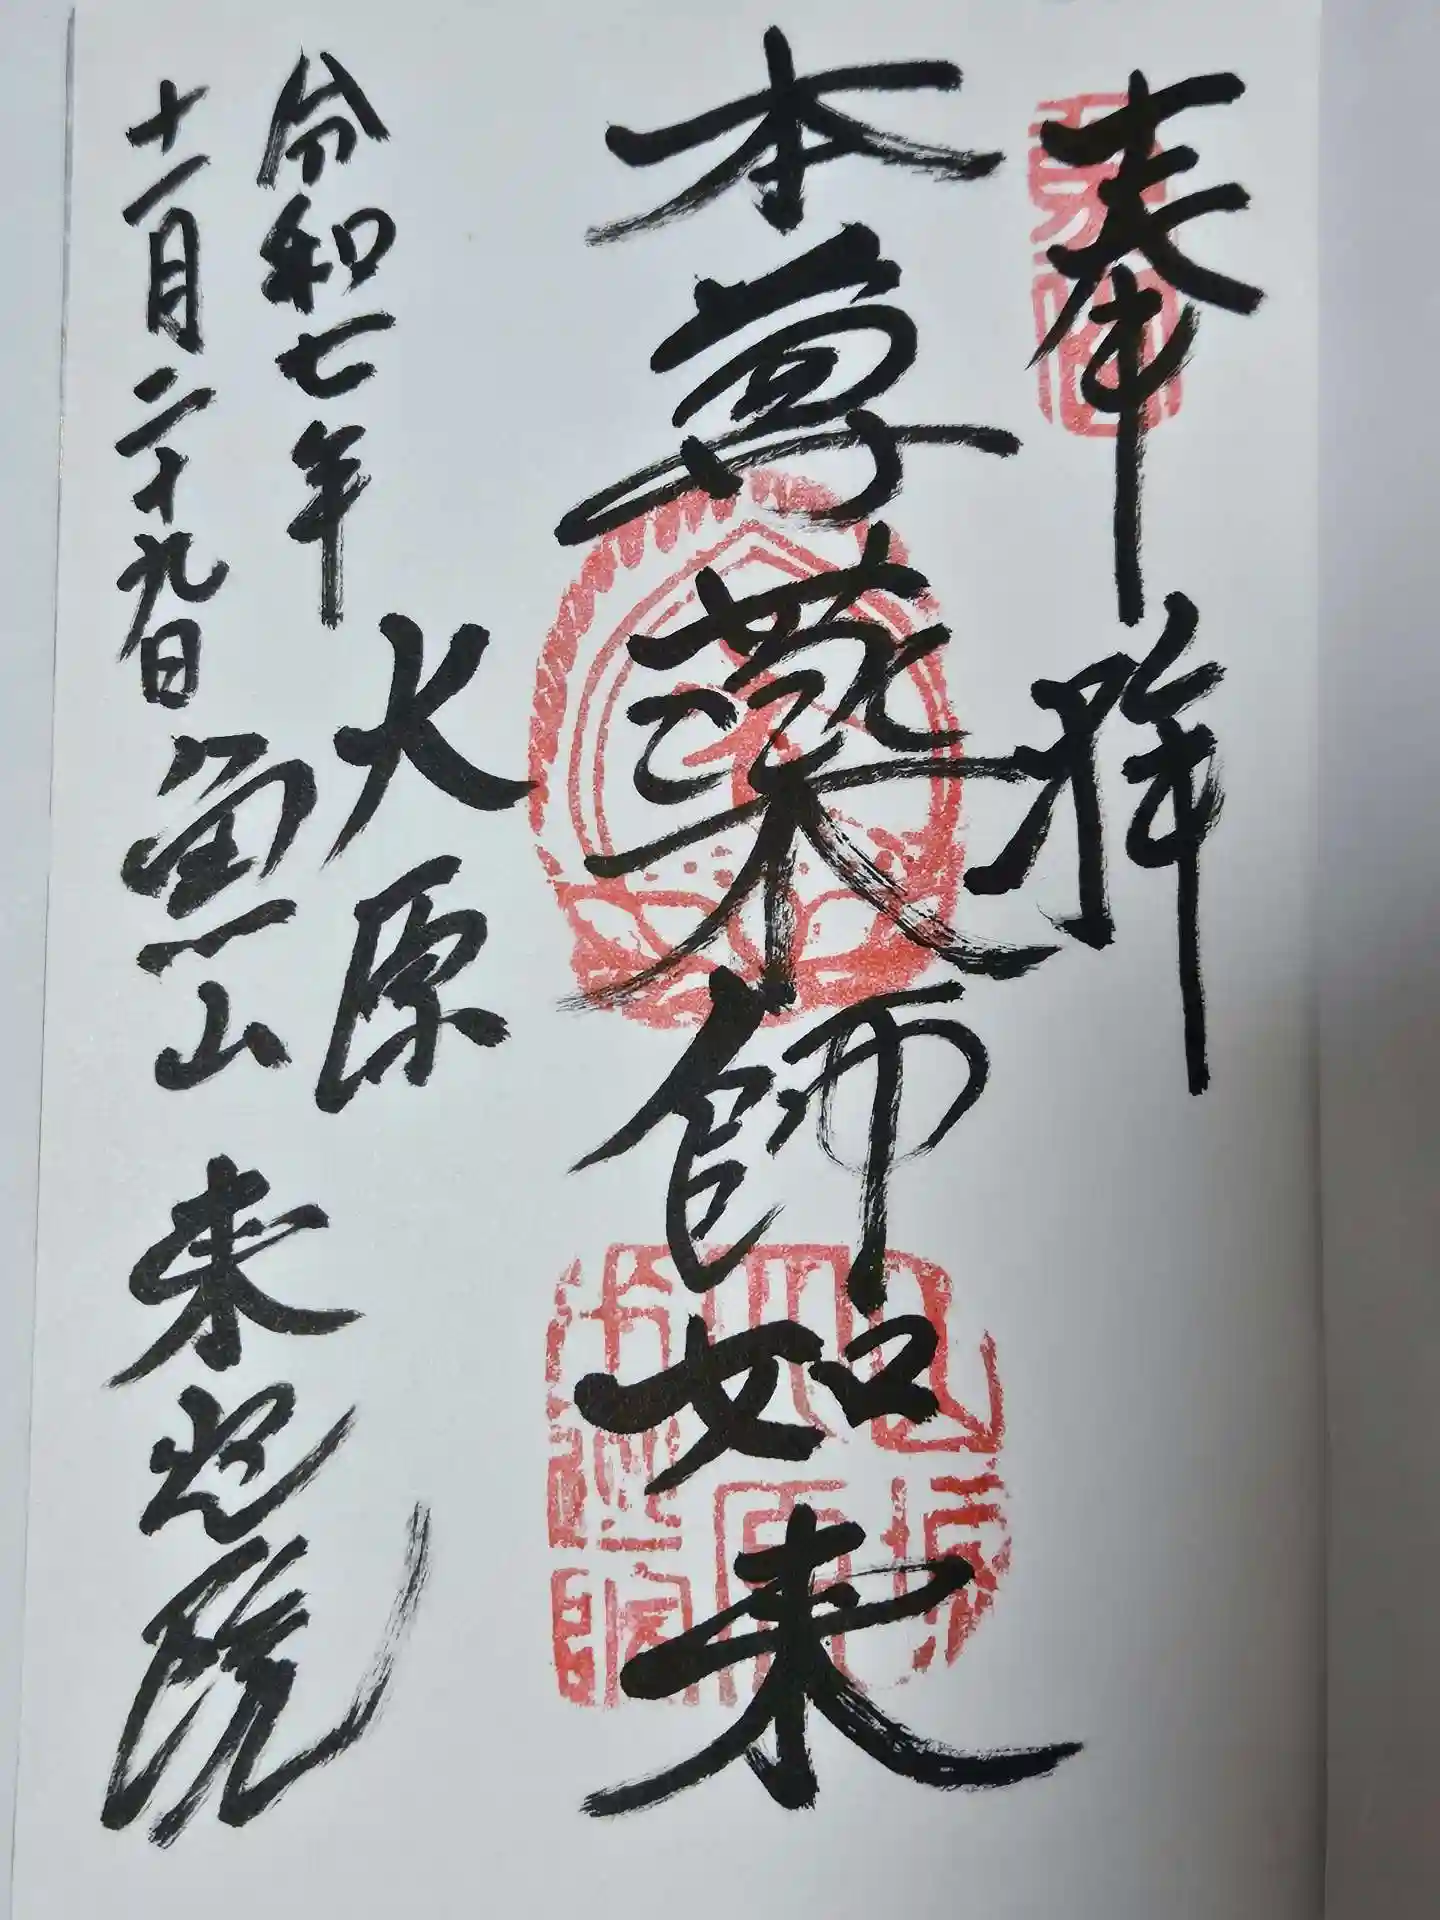 奉拜
本尊薬師如来
大原
魚山 来迎院
令和七年
十一月二十九日